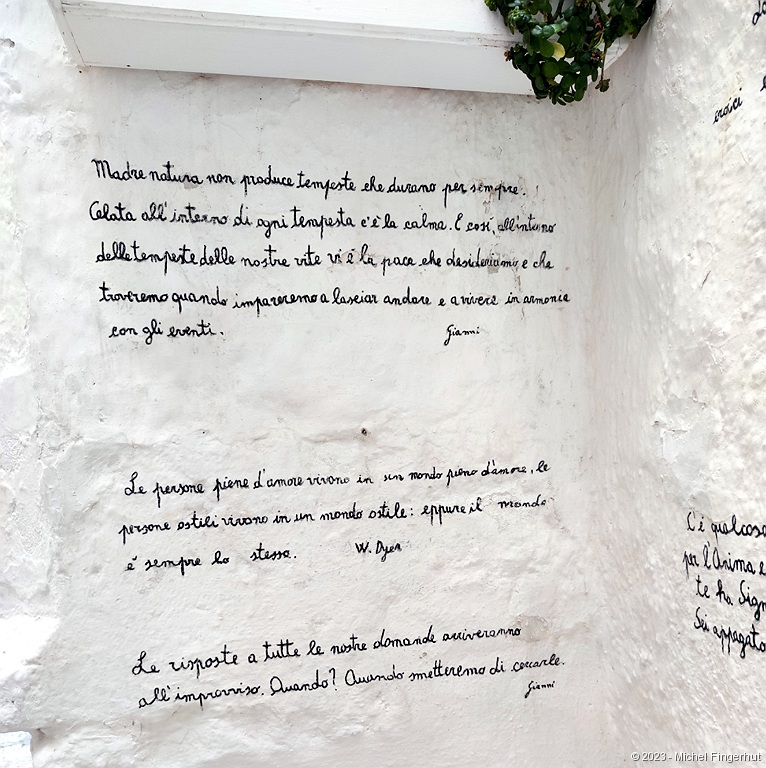 Madre natura non produce tempeste che durano per sempre.
Celata all'interno di ogni tempesta c'è la calma. E così, all'interno
delle tempeste delle nostre vite vi è la pace che desideriamo e che
troveremo quando impareremo a lasciar andare e a vivere in armonia
con gli eventi.
Gianni
Le persone piene d'amore vivono in un mondo pieno d'amore, le
persone ostili vivono in un mondo ostile: eppure il mondo
è sempre lo stesso.
W. Dyer
Le risposte a tutte le nostre domande arriveranno
all'improvviso. Quando? Quando smetteremo di cercarle.
Gianni
C'è qualcosa
per l'Anima e
te ha Sign
Sei appagato
© 2023 - Michel Fingerhut